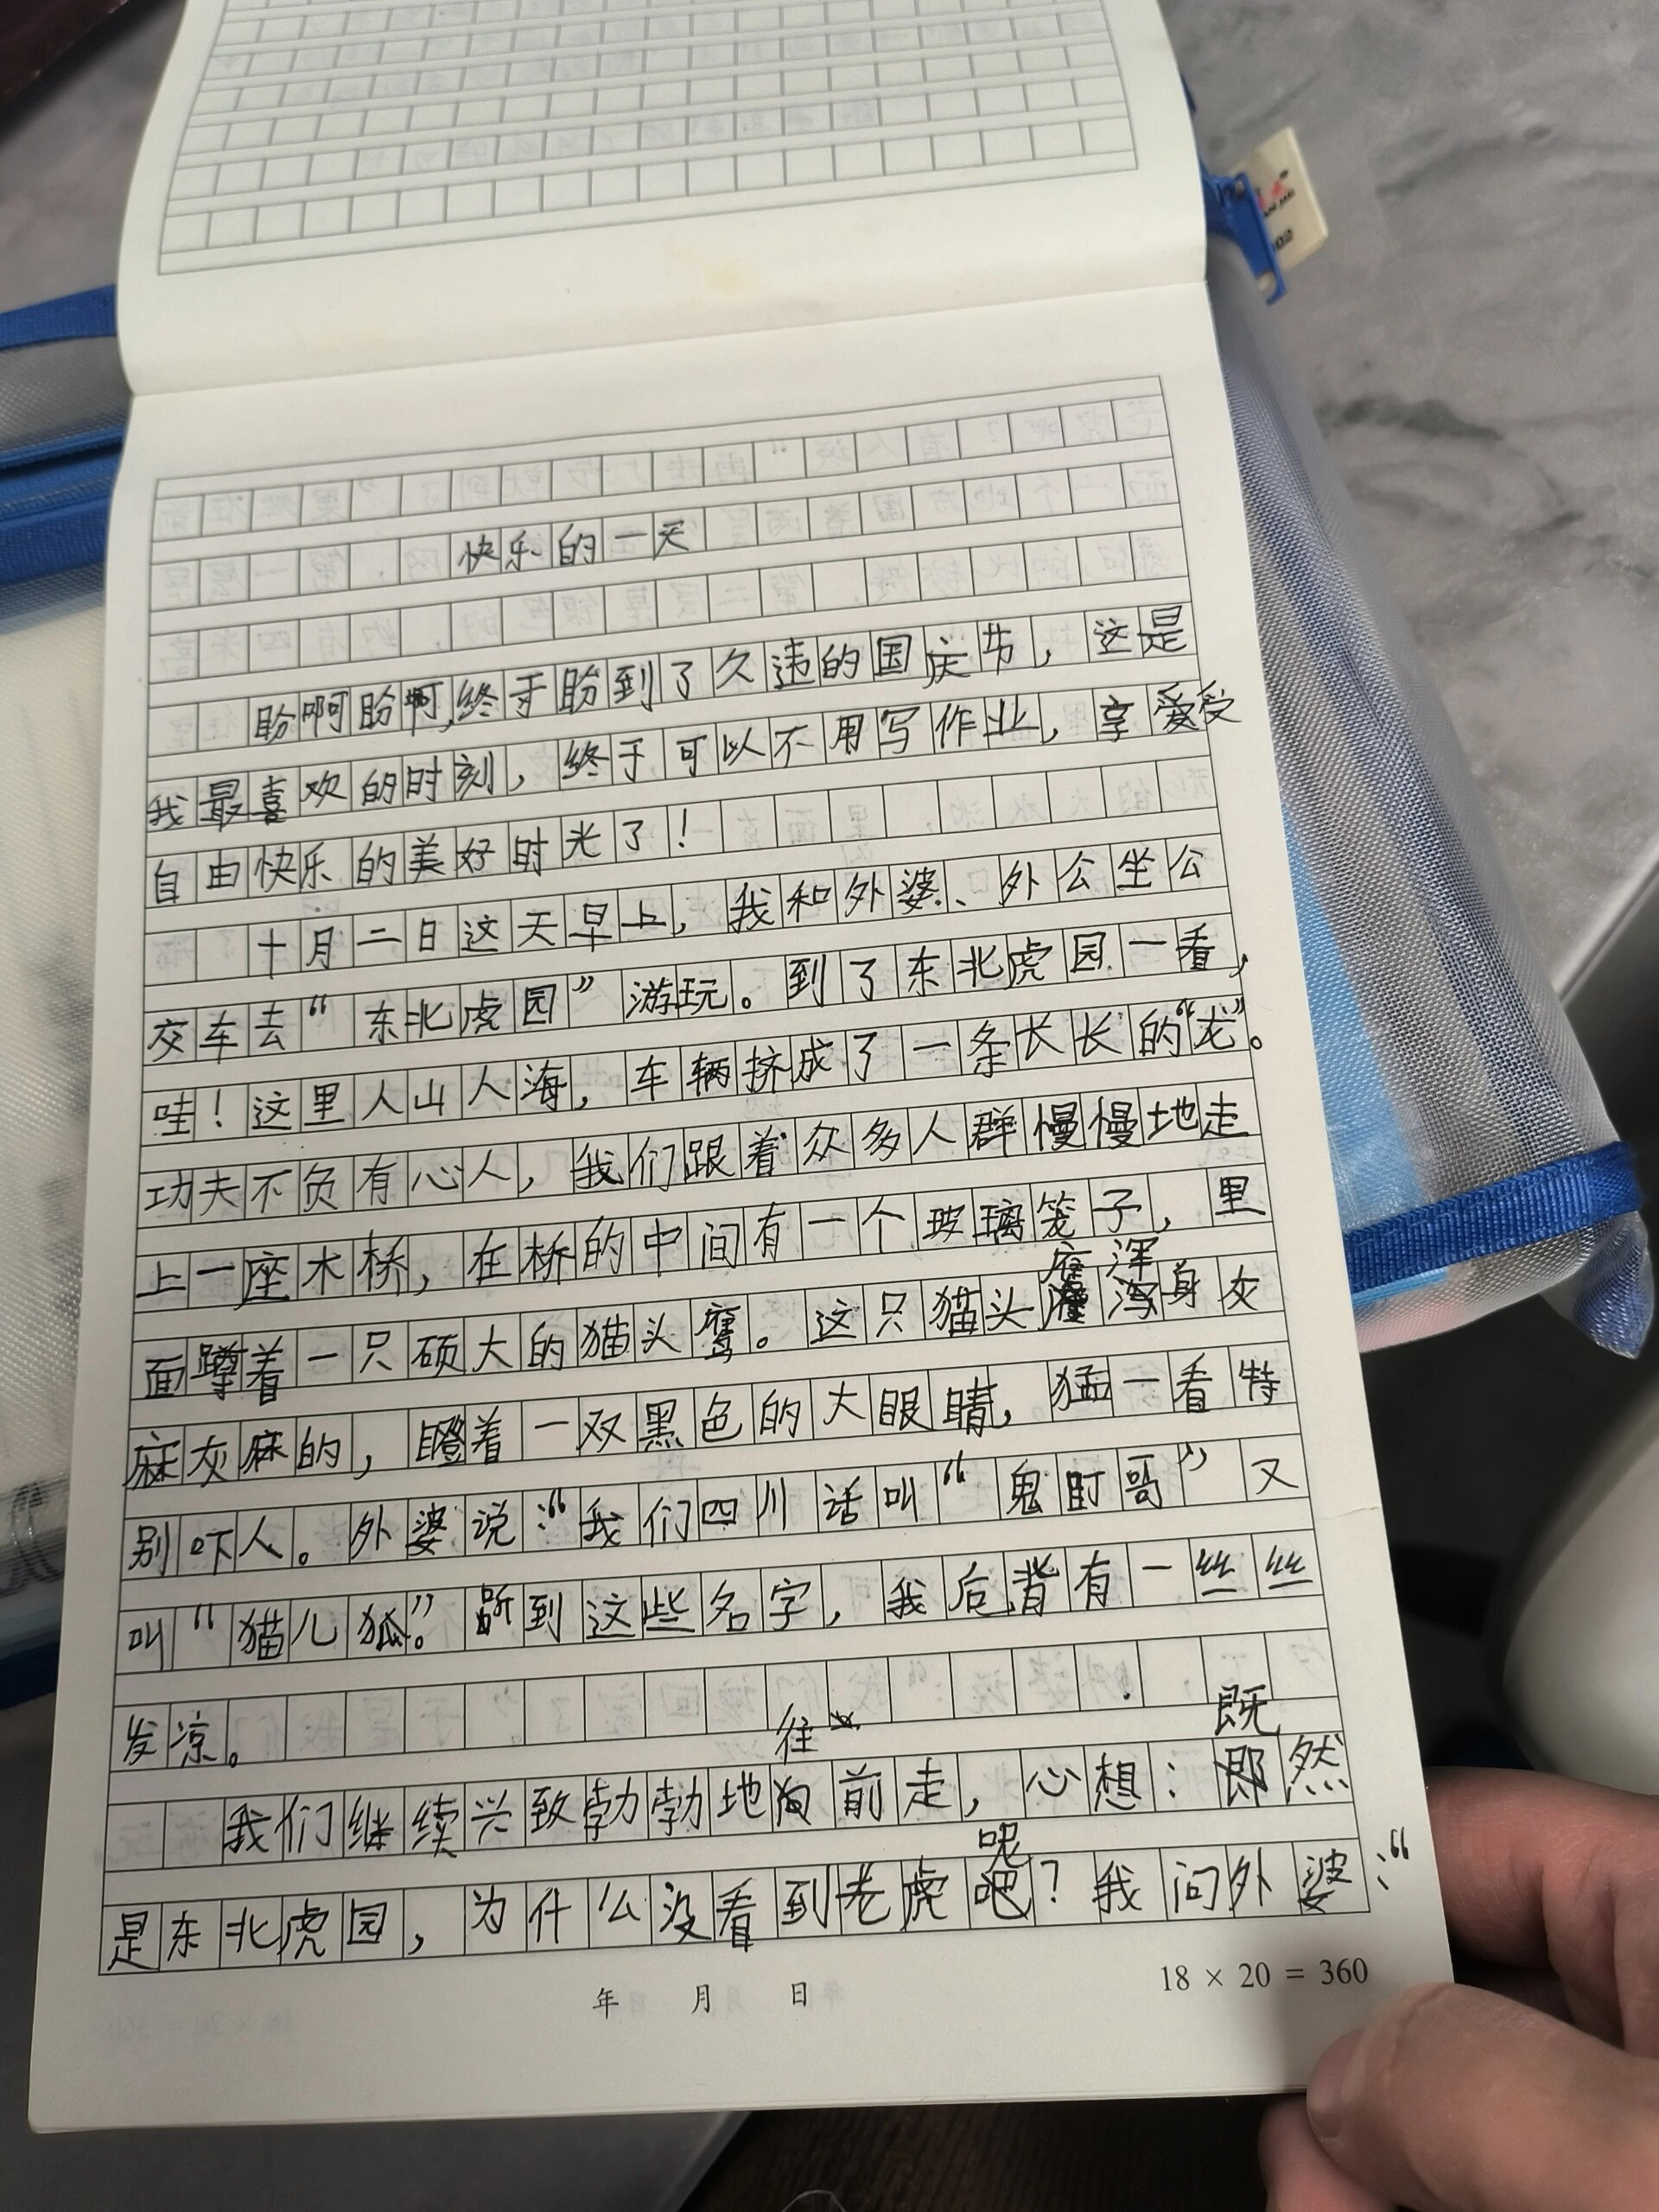 快乐的一天
盼啊盼啊,终于盼到了久违的国庆节，这是
我最喜欢的时刻，终于可以不用写作业，享受
自由快乐的美好时光了！
十月二日这天早上，我和外婆、外公坐公
交车去“东北虎园”游玩。到了东北虎园一看，
哇！这里人山人海，车辆挤成了一条长长的“龙”。
功夫不负有心人，我们跟着众多人群慢慢地走
上一座木桥，在桥的中间有一个玻璃笼子，里
面蹲着一只硕大的猫头鹰。这只猫头鹰浑身灰
麻灰麻的，瞪着一双黑色的大眼睛，猛一看特
别吓人。外婆说：“我们四川话叫“鬼盯哥”又
叫“猫儿狐”。听到这些名字，我后背有一丝丝
发凉。
我们继续兴致勃勃地往前走，心想：既然
是东北虎园，为什么没看到老虎呢？我问外婆：“
年 月 日
18 × 20 = 360